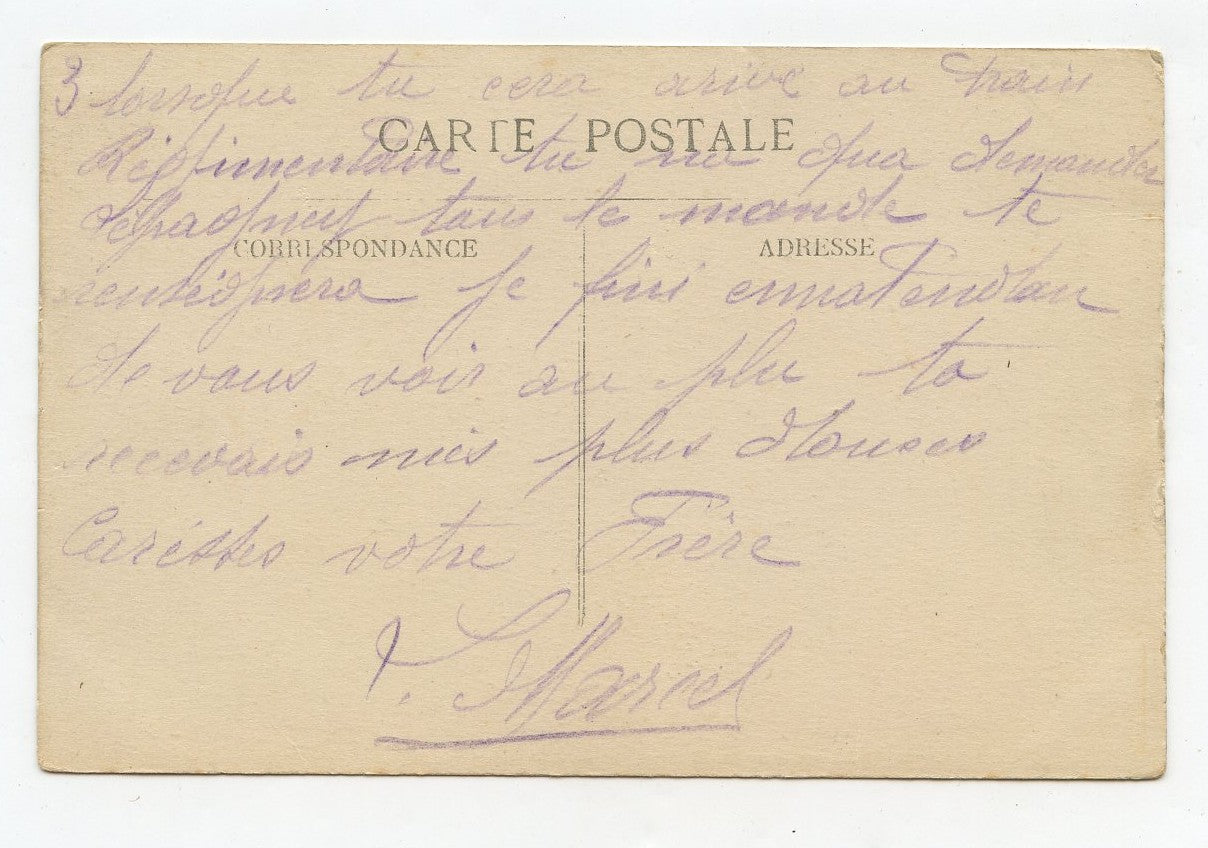 3 lorsque tu cera arivé au train
CARTE POSTALE
Régimentaire tu na qua demander
tous le monde te
CORRESPONDANCE
ADRESSE
renseignera je fini
de vous voir au plu to
recevais mes plus douces
Caresses votre Frère
Marcel